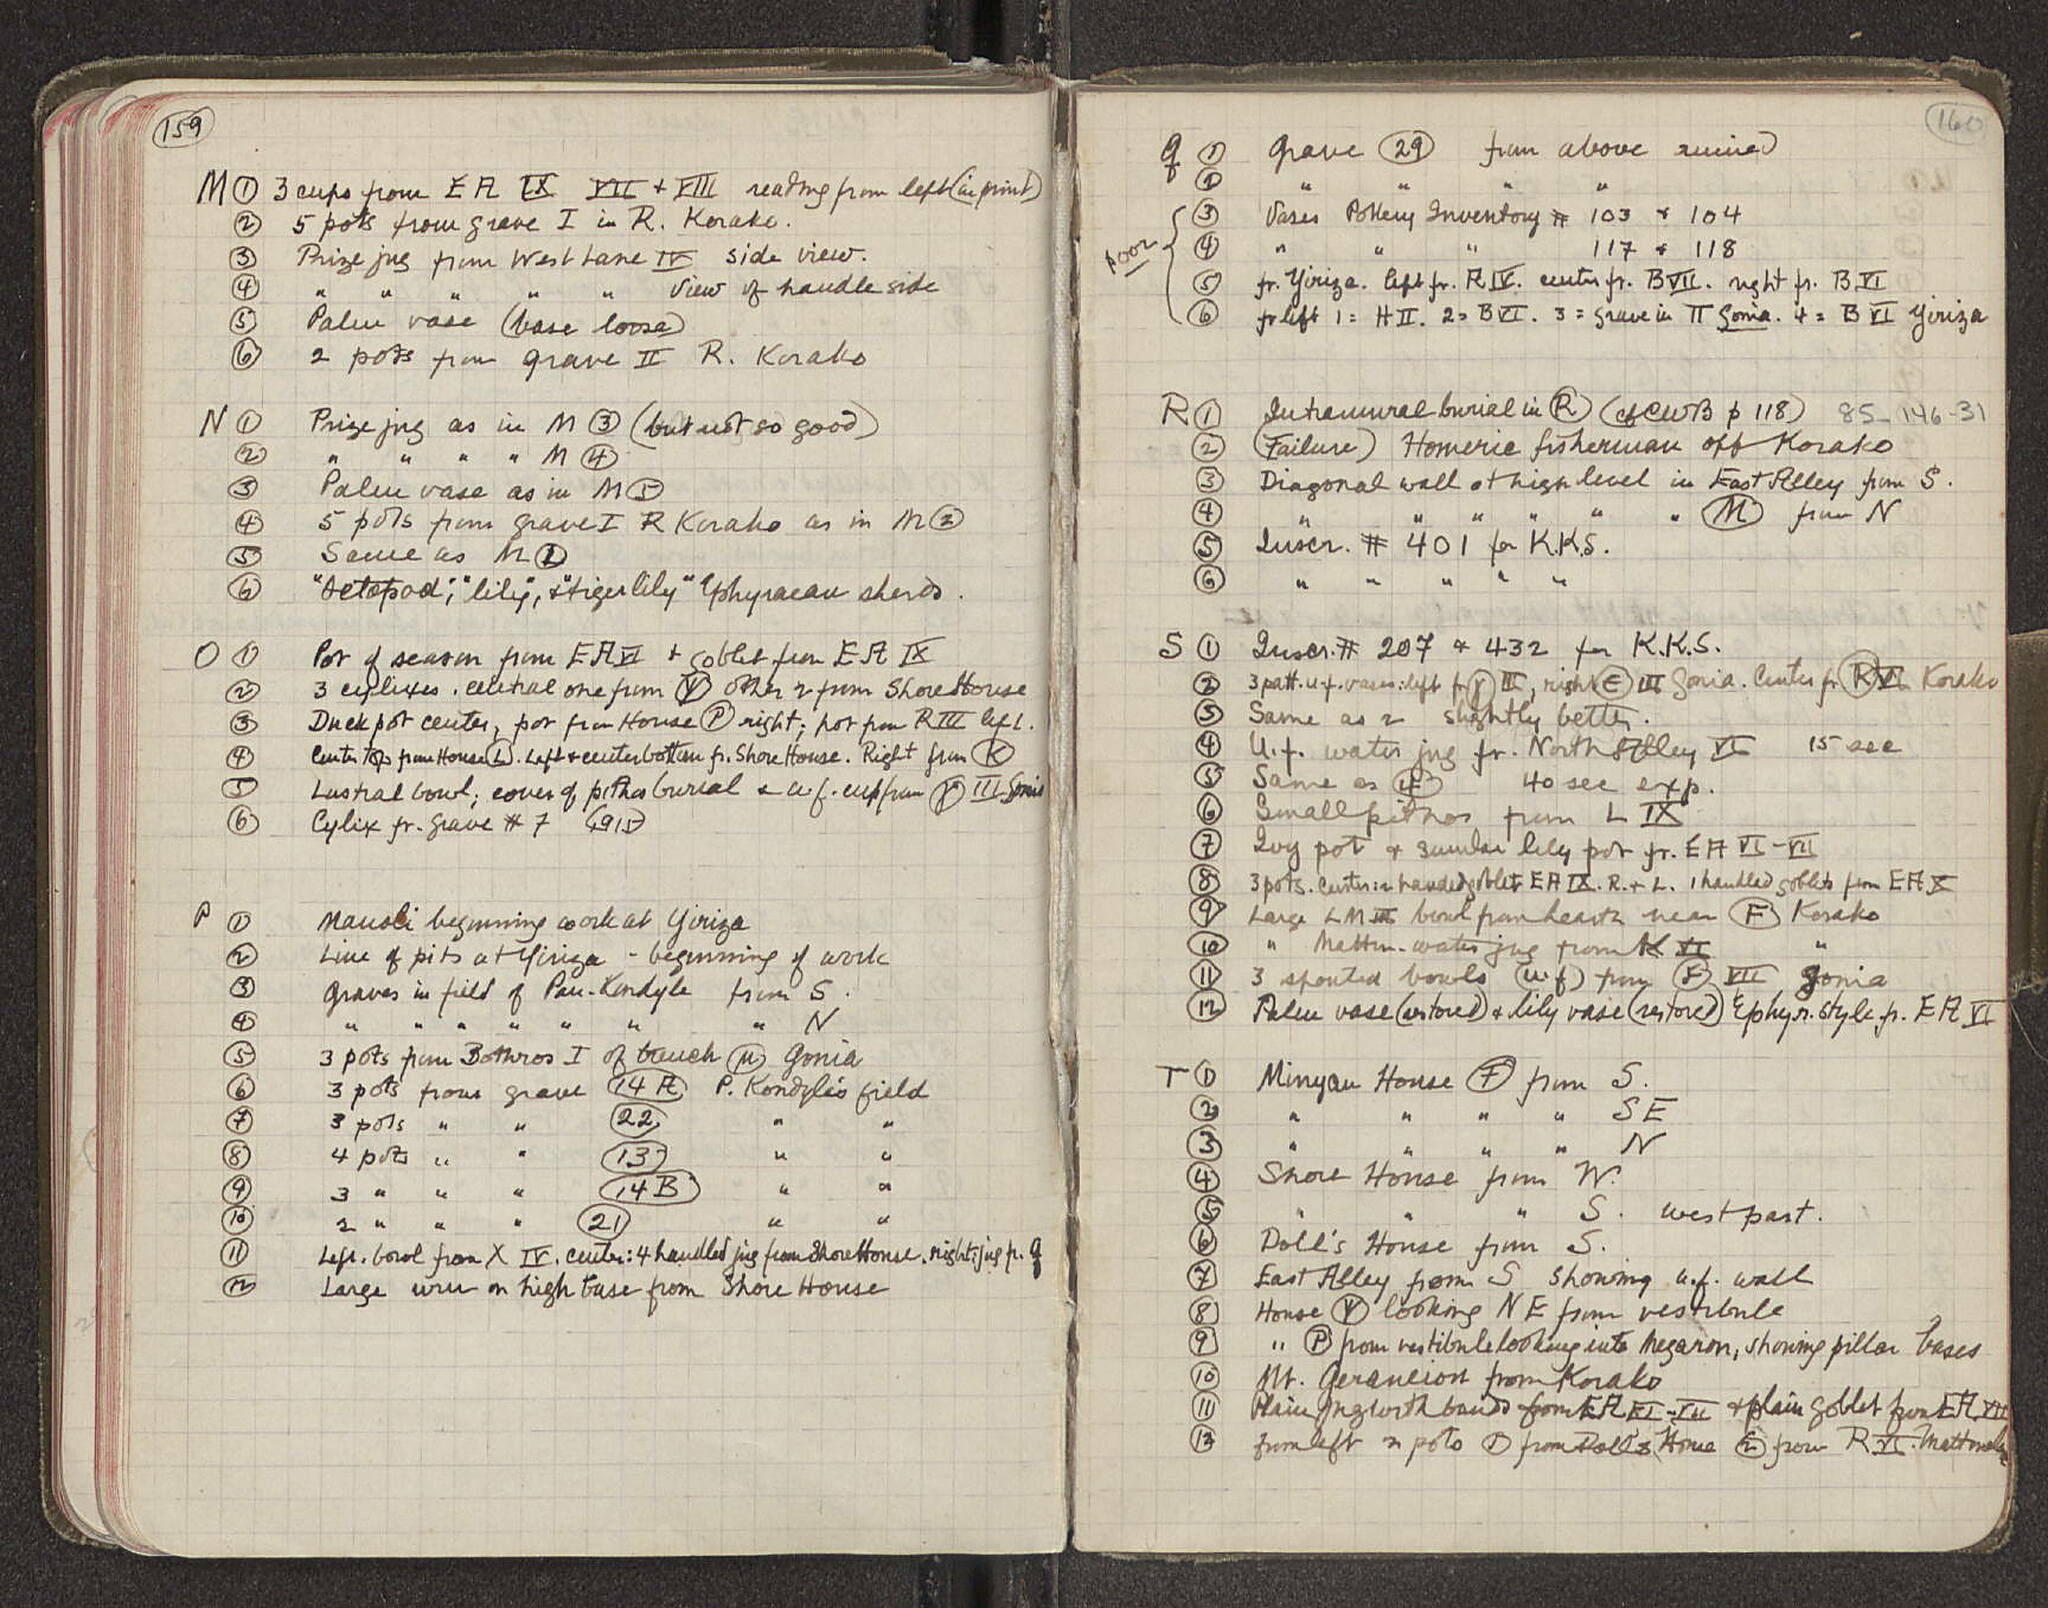 159
M ① 3 cups from EA IX VII + VIII reading from left (in print)
② 5 pots from grave I in R. Korako.
③ Prize jug from West Lane IV side view.
④ " " " " " View of handle side
⑤ Palm vase (base loose)
⑥ 2 pots from grave II R. Korako
N ① Prize jug as in M ③ (but not so good)
② " " " " M ④
③ Palm vase as in M ⑤
④ 5 pots from grave I R Korako as in M ②
⑤ Same as M ①
⑥ "Octopod", "lily", & "tiger lily" Ephyraean sherds.
O ① Pot of season from EA VI + goblet from EA IX
② 3 cylixes. central one from Ⓨ other 2 from Shore House
③ Duck pot center, pot from House Ⓟ right; pot from R III left.
④ Center top from House Ⓛ. Left + center bottom fr. Shore House. Right from Ⓚ
⑤ Lustral bowl; cover of pithos burial & u.f. cup from Ⓨ III Gonia
⑥ Cylix fr. grave # 7 (915)
P ① Manoli beginning work at Yiriza
② Line of pits at Yiriza - beginning of work
③ Graves in field of Pan. Kondyle from S.
④ " " " " " " " N
⑤ 3 pots from Bothros I of trench Ⓜ Gonia
⑥ 3 pots from grave 14 A P. Kondylis field
⑦ 3 pots " " 22 " "
⑧ 4 pots " " 13 " "
⑨ 3 " " " 14 B " "
⑩ 2 " " " 21 " "
⑪ Left. bowl from X IV. center: 4 handled jug from Shore House. right: jug fr. q
⑫ Large urn on high base from Shore House
160
Q ① Grave 29 from above ruined
② " " " "
poor
③ Vases Pottery Inventory # 103 & 104
④ " " " 117 & 118
⑤ fr. Yiriza. left fr. A IV. center fr. B VII. right fr. B VI
⑥ fr left 1 = H II. 2 = B VI. 3 = grave in Π Gonia. 4 = B VI Yiriza
R ① Intramural burial in Ⓡ (cf CWB p 118) 85-146-31
② (Failure) Homeric fisherman off Korako
③ Diagonal wall at high level in East Alley from S.
④ " " " " " " Ⓜ from N
⑤ Inscr. # 401 for K.K.S.
⑥ " " " " "
S ① Inscr. # 207 & 432 for K.K.S.
② 3 patt. u.f. vases: left fr Ⓨ III, right Ⓔ III Gonia. Center fr. Ⓡ VI Korako
③ Same as 2 slightly better.
④ U.f. water jug fr. North Alley VI 15 sec
⑤ Same as ④ 40 sec exp.
⑥ Small pithos from L IX
⑦ Ivy pot & similar lily pot fr. EA VI-VII
⑧ 3 pots. Center: 2 handled goblet EA IX. R. + L. 1 handled goblets from EA X
⑨ Large LM III bowl from hearth near Ⓕ Korako
⑩ " Mattm. water jug from K VI "
⑪ 3 spouted bowls (u.f) from Ⓕ VII Gonia
⑫ Palm vase (restored) & lily vase (restored) Ephyr. style fr. EA VI
T ① Minyan House Ⓕ from S.
② " " " " SE
③ " " " " N
④ Shore House from W.
⑤ " " " S. west part.
⑥ Doll's House from S.
⑦ East Alley from S showing u.f. wall
⑧ House Ⓨ looking NE from vestibule
⑨ " Ⓟ from vestibule looking into Megaron, showing pillar bases
⑩ Mt. Geraneion from Korako
⑪ Plain jug with bands from EA VI-VII & plain goblet from EA VII
⑫ from left 2 pots ① from Doll's House ② from R VI.